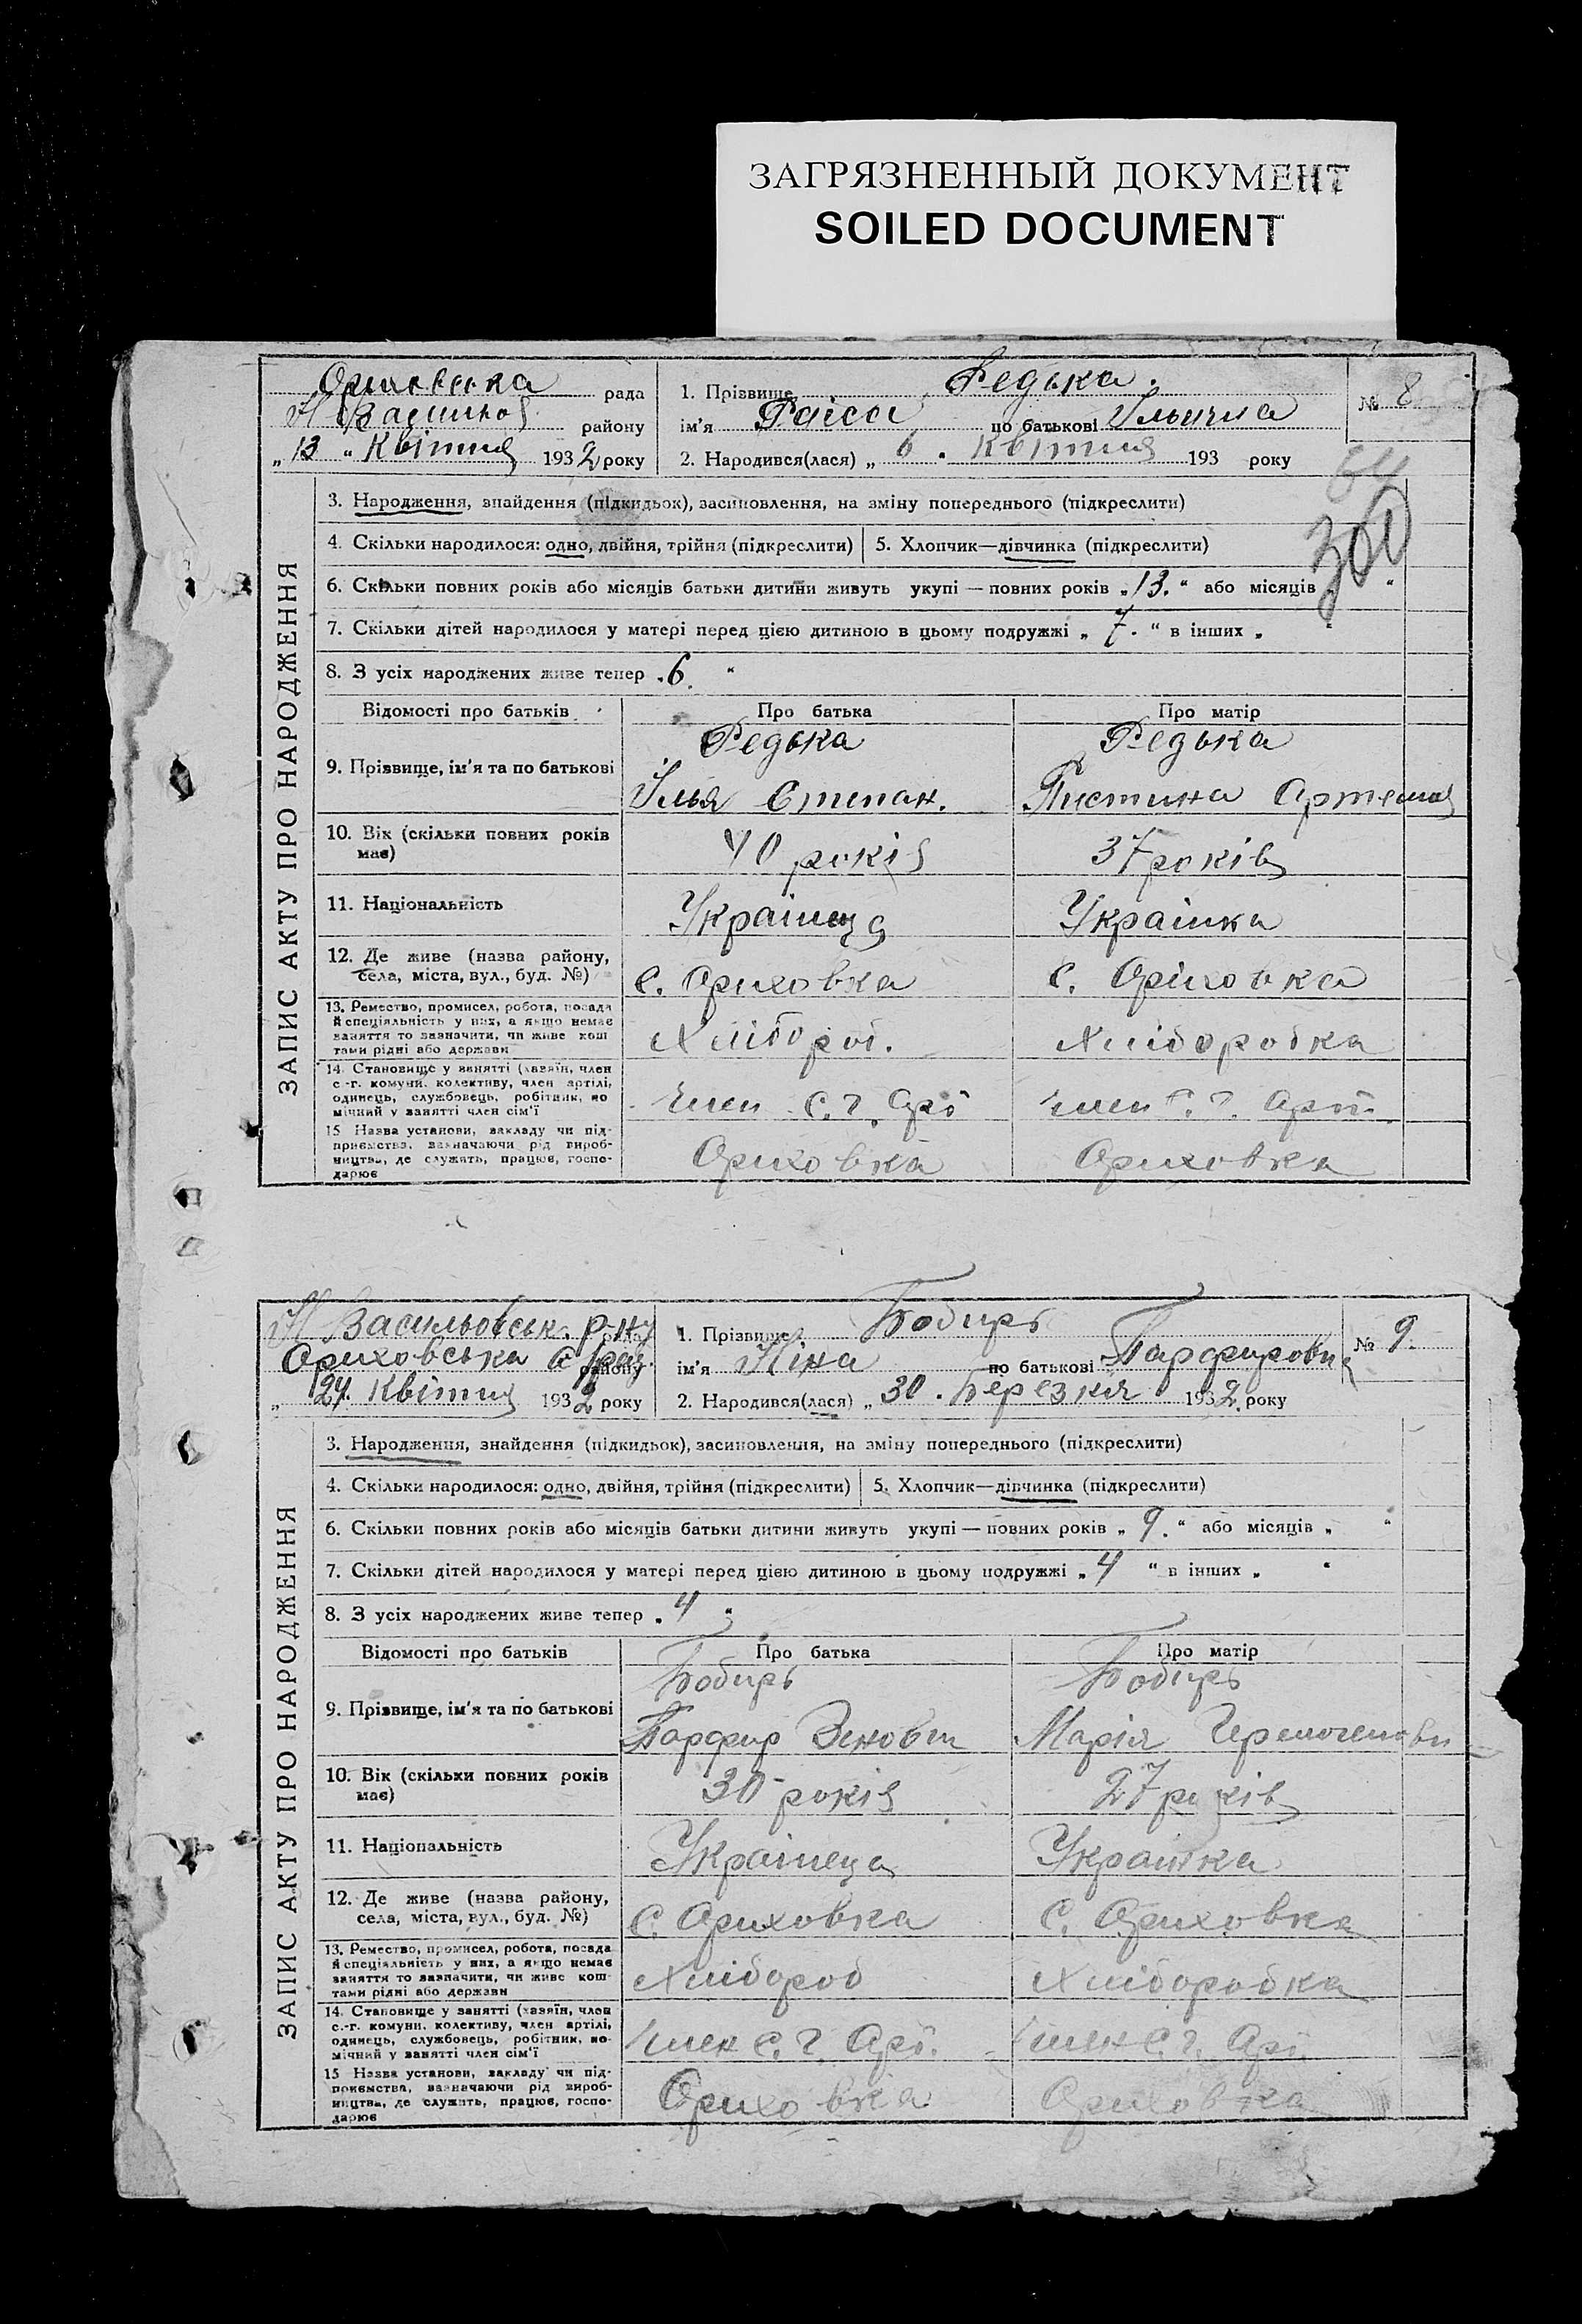 ЗАГРЯЗНЕННЫЙ ДОКУМЕНТ
SOILED DOCUMENT
рада
району
„ 13 " Квітня 1932 року
1. Прізвище Редька.
ім'я Раіса по батькові Ільична
2. Народився(лася) „ 6 . Квітня 193 року
№ 8
64
300
ЗАПИС АКТУ ПРО НАРОДЖЕННЯ
3. Народження, знайдення (підкидьок), засиновлення, на зміну попереднього (підкреслити)
4. Скільки народилося: одно, двійня, трійня (підкреслити)
5. Хлопчик—дівчинка (підкреслити)
6. Скільки повних років або місяців батьки дитини живуть укупі — повних років „13." або місяців „ "
7. Скільки дітей народилося у матері перед цією дитиною в цьому подружжі „ 7. " в інших „ "
8. З усіх народжених живе тепер „6. "
Відомості про батьків
Про батька
Про матір
9. Прізвище, ім'я та по батькові
Редька
Ілья Степан.
Редька
10. Вік (скільки повних років
має)
40 років
37 років
11. Національність
Українец
Українка
12. Де живе (назва району,
села, міста, вул., буд. №)
с. Ориховка
с. Оріховка
13. Ремество, промисел, робота, посада
й спеціяльність у них, а якщо немає
заняття то зазначити, чи живе кош
тами рідні або держави
Хлібороб.
Хліборобка
14. Становище у занятті (хазяїн, член
с.-г. комуни, колективу, член артілі,
одинець, службовець, робітник, по
мічний у занятті член сім'ї
член С. Г. Арт
член С. Г. Арт.
15 Назва установи, закладу чи під-
приємства, зазначаючи рід вироб-
ництва, де служить, працює, госпо-
дарює
Ориховка
Ориховка
Н Васильовськ. р-ну
рада
Ориховська
району
„ 24. Квітня 1932 року
1. Прізвище Бобирь
ім'я Ніна по батькові
2. Народився(лася) „ 30 . Березня 1932 року
№ 9.
ЗАПИС АКТУ ПРО НАРОДЖЕННЯ
3. Народження, знайдення (підкидьок), засиновлення, на зміну попереднього (підкреслити)
4. Скільки народилося: одно, двійня, трійня (підкреслити)
5. Хлопчик—дівчинка (підкреслити)
6. Скільки повних років або місяців батьки дитини живуть укупі — повних років „ 9. " або місяців „ "
7. Скільки дітей народилося у матері перед цією дитиною в цьому подружжі „ 4 " в інших „ "
8. З усіх народжених живе тепер „ 4 "
Відомості про батьків
Про батька
Про матір
9. Прізвище, ім'я та по батькові
Бобирь
Парфир
Бобирь
Марія
10. Вік (скільки повних років
має)
30 років
27 років
11. Національність
Українец
Українка
12. Де живе (назва району,
села, міста, вул., буд. №)
С. Ориховка
С. Ориховка
13. Ремество, промисел, робота, посада
й спеціяльність у них, а якщо немає
заняття то зазначити, чи живе кош-
тами рідні або держави
Хлібороб
Хліборобка
14. Становище у занятті (хазяїн, член
с.-г. комуни, колективу, член артілі,
одинець, службовець, робітник, по-
мічний у занятті член сім'ї
член С. Г. Арт.
член С. Г. Арт.
15 Назва установи, закладу чи під-
приємства, зазначаючи рід вироб-
ництва, де служить, працює, госпо-
дарює
Ориховка
Ориховка